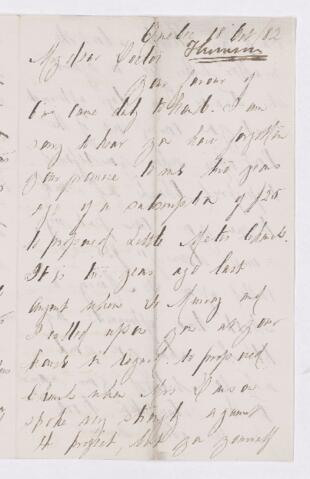 18 Oct / 82
My dear Doctor
Your favour of
came duly to hand. I am
sorry to hear you have forgotten
your promise to me two years
ago of a subscription of £25
to proposed Little Church.
It is two years ago last
August when Murray and
I called upon you at your
house in regard to proposed
Church when Mrs
spoke very strongly against
the project, but you yourself